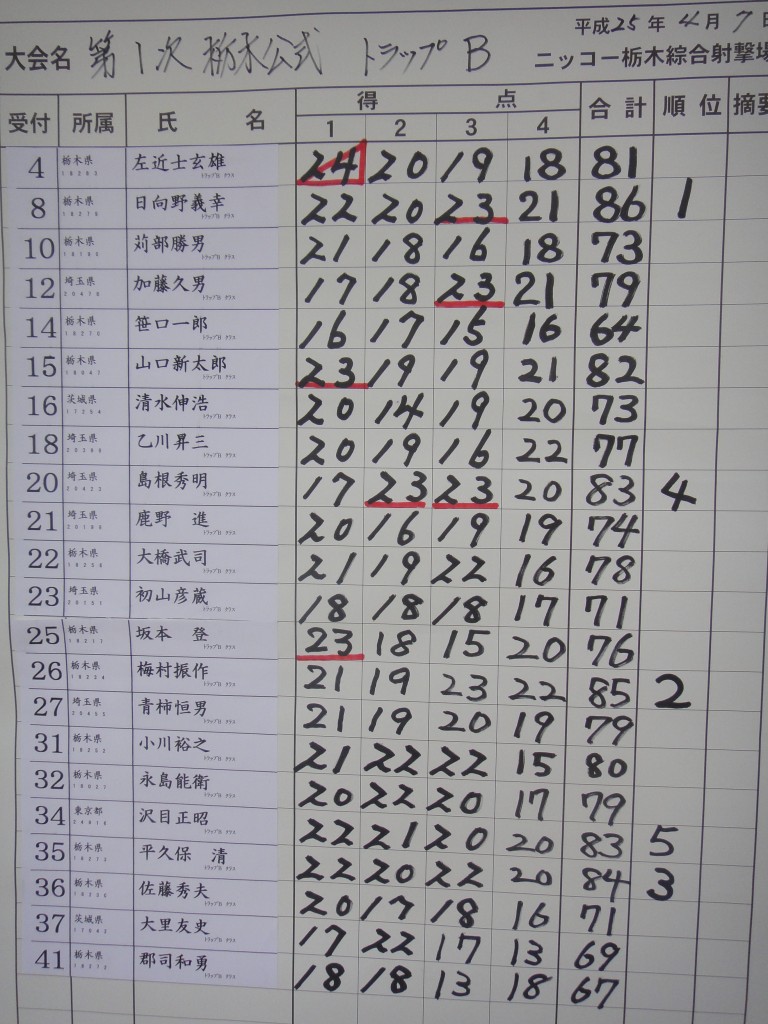 平成25年4月7日
大会名 第1次 栃木公式 トラップ B ニッコー栃木綜合射撃場
受付 所属 氏名 得点 合計 順位 摘要
1 2 3 4
4 栃木県 左近士玄雄 24 20 19 18 81
8 栃木県 日向野義幸 22 20 23 21 86 1
10 栃木県 苅部勝男 21 18 16 18 73
12 埼玉県 加藤久男 17 18 23 21 79
14 栃木県 笹口一郎 16 17 15 16 64
15 栃木県 山口新太郎 23 19 19 21 82
16 茨城県 清水伸浩 20 14 19 20 73
18 埼玉県 乙川昇三 20 19 16 22 77
20 埼玉県 島根秀明 17 23 23 20 83 4
21 埼玉県 鹿野 進 20 16 19 19 74
22 栃木県 大橋武司 21 19 22 16 78
23 埼玉県 初山彦蔵 18 18 18 17 71
25 栃木県 坂本 登 23 18 15 20 76
26 栃木県 梅村振作 21 19 23 22 85 2
27 埼玉県 青柿恒男 21 19 20 19 79
31 栃木県 小川裕之 21 22 22 15 80
32 栃木県 永島能衛 20 22 20 17 79
34 東京都 沢目正昭 22 21 20 20 83 5
35 栃木県 平久保 清 22 20 22 20 84 3
36 栃木県 佐藤秀夫 20 17 18 16 71
37 茨城県 大里友史 17 22 17 13 69
41 栃木県 郡司和勇 18 18 13 18 67